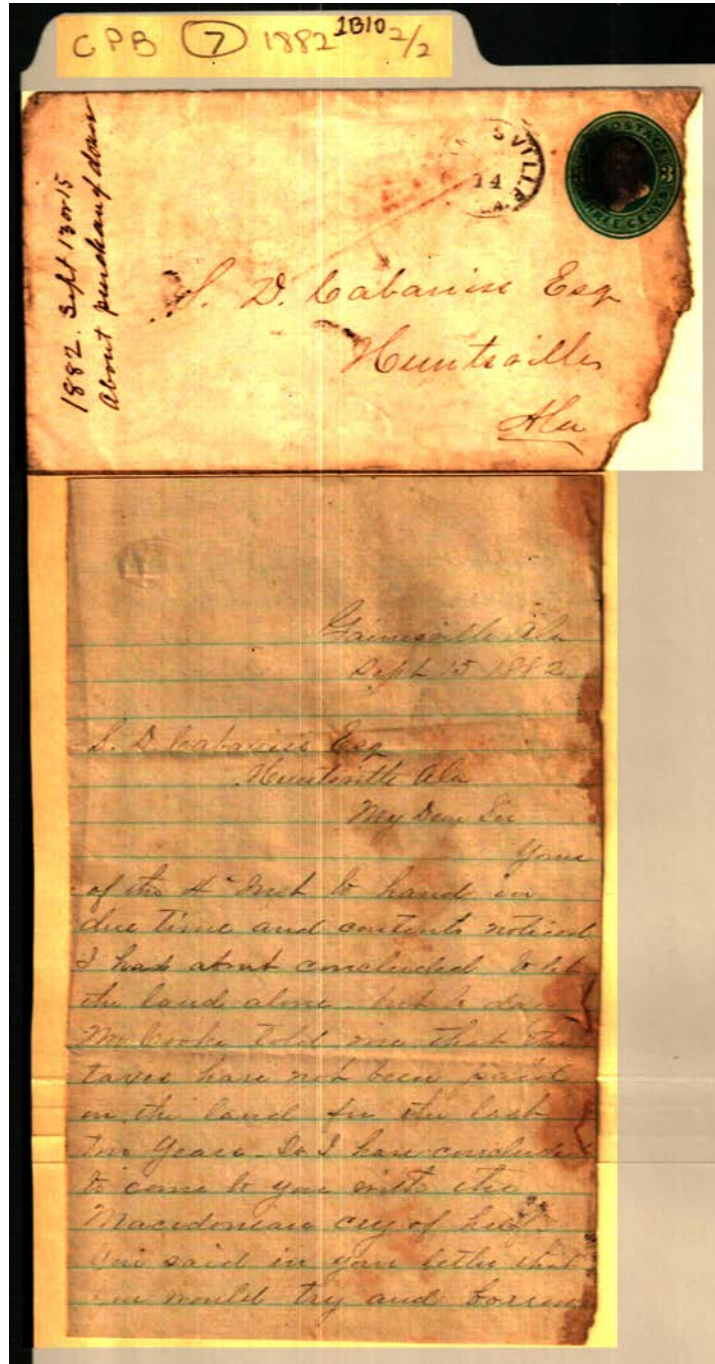 CPB 7 1882 1B10 2/2
1882. Sept 13 or 15
About purchase of
SVILLE
14
POSTAGE
3
THREE CENTS
S. D. Cabaniss Esq
Huntsville
Ala
Gainesville Ala
Sept 15 1882
S. D. Cabaniss Esq
Huntsville Ala
My Dear Sir
Yours
of the 4" Inst to hand in
due time and contents noticed
I had about concluded to let
the land alone. but to day
Mr Cooke told me that the
taxes have not been paid
on the land for the last
two years. So I have concluded
to come to you with the
Macedonian cry of help.
You said in your letter that
you would try and borrow